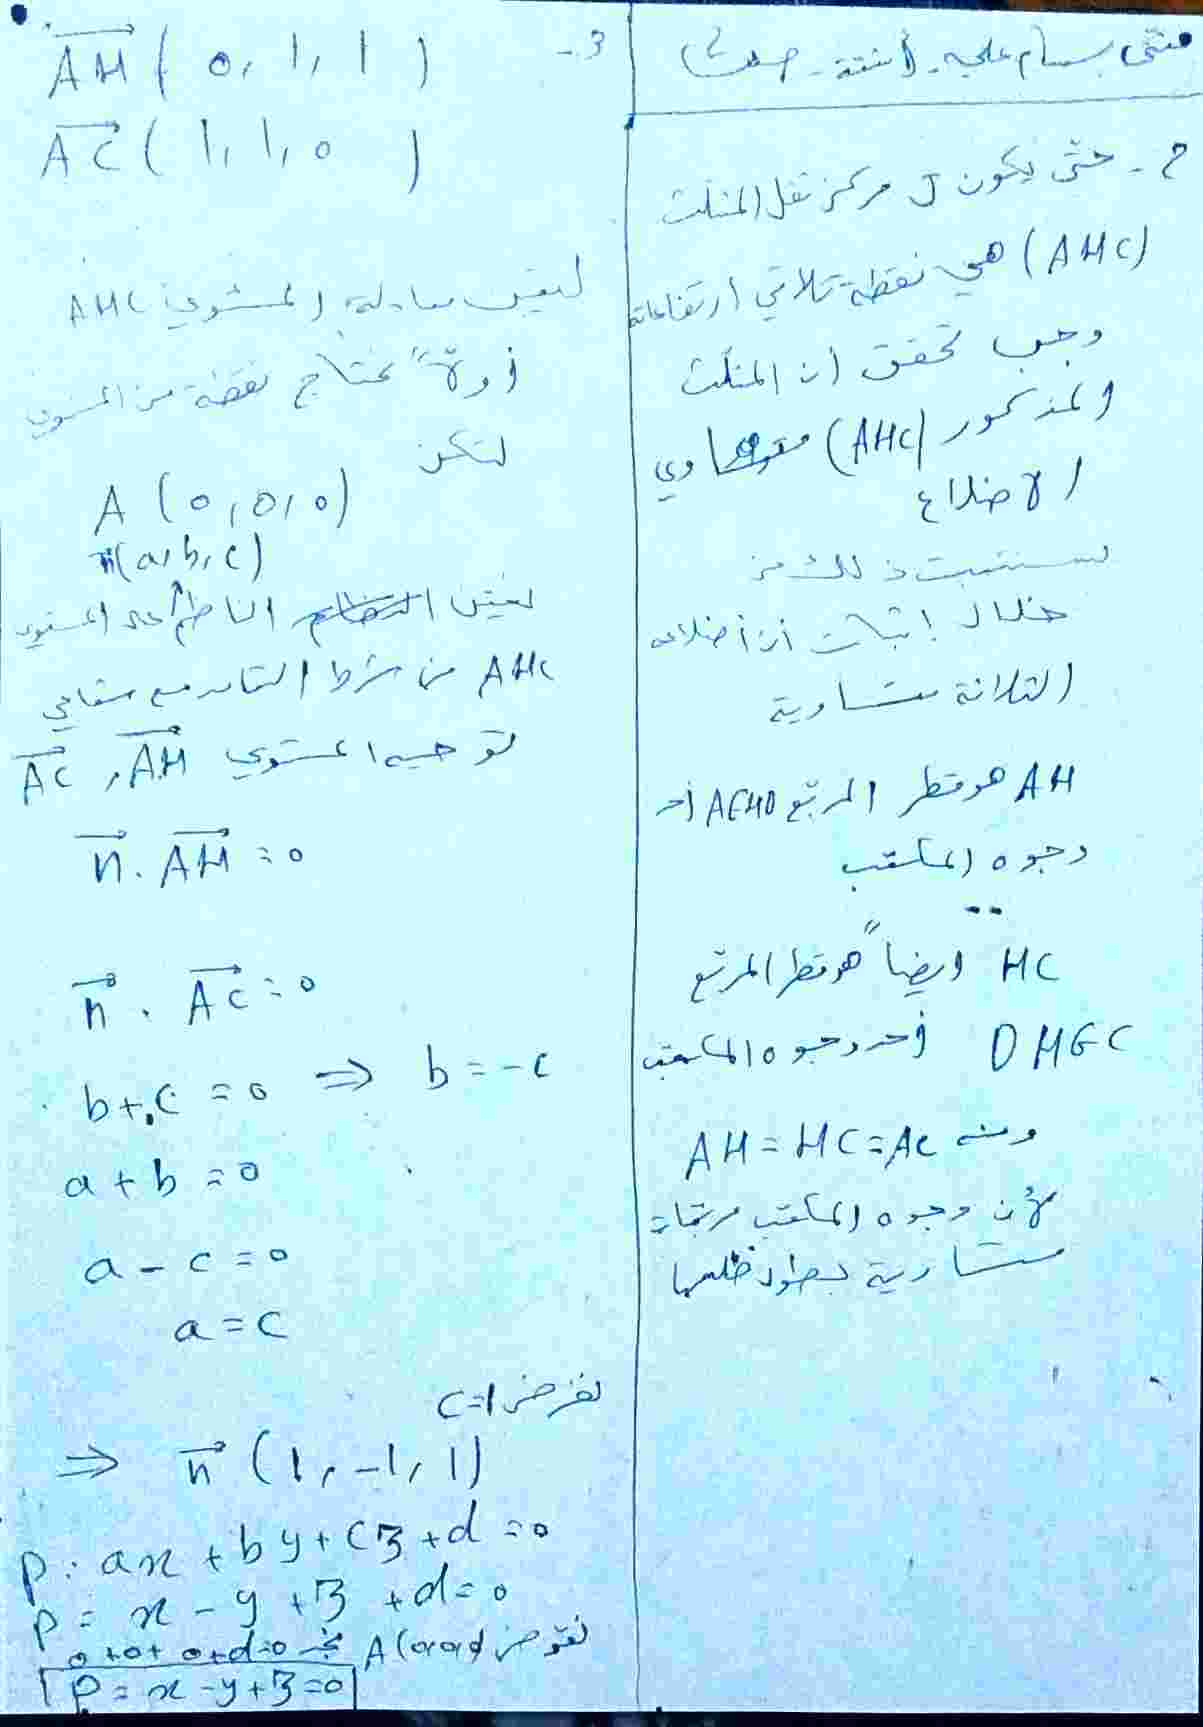 منتهى بسام علي - أتمتة - صف
ح - حتى يكون J مركز ثقل المثلث
(AHC) هي نقطة تلاقي ارتفاعاته
وجب تحقق ان المثلث
المذكور (AHC) متساوي
الاضلاع
سنثبت ذلك من
خلال إثبات أن أضلاعه
الثلاثة متساوية
AH هو قطر المربع AEHD أحد
وجوه المكعب
HC ايضاً هو قطر المربع
DHGC أحد وجوه المكعب
ومنه AH = HC = AC
لأن وجوه المكعب مربعات
متساوية بطول ضلعها
3-
AH ( 0, 1, 1 )
AC ( 1, 1, 0 )
لنعين معادلة المستوي AHC
أولاً نحتاج نقطة من المستوي
لتكن
A ( 0, 0, 0 )
n(a, b, c)
نعين الناظم على المستوي
AHC من شرط التعامد مع شعاعي
توجيه المستوي AH, AC
n . AH = 0
n . AC = 0
b + c = 0 ⇒ b = -c
a + b = 0
a - c = 0
a = c
نفرض c=1
⇒ n (1, -1, 1)
P: ax + by + cz + d = 0
P = x - y + z + d = 0
نعوض A(0,0,0) نجد 0+0+0+d=0
P = x - y + z = 0